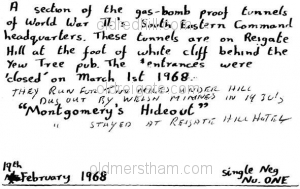 A section of the gas-bomb proof tunnels
of World War II's South Eastern Command
headquarters. These tunnels are on Reigate
Hill at the foot of white cliff behind the
Yew Tree pub. The entrances were
'closed' on March 1st 1968.
THEY RUN FOR MILES UNDER HILL
DUG OUT BY WELSH MINERS IN 1930's
"Montgomery's Hideout"
" STAYED AT REIGATE HILL HOTEL
19th
February 1968
single Neg
No. ONE
oldmerstham.com